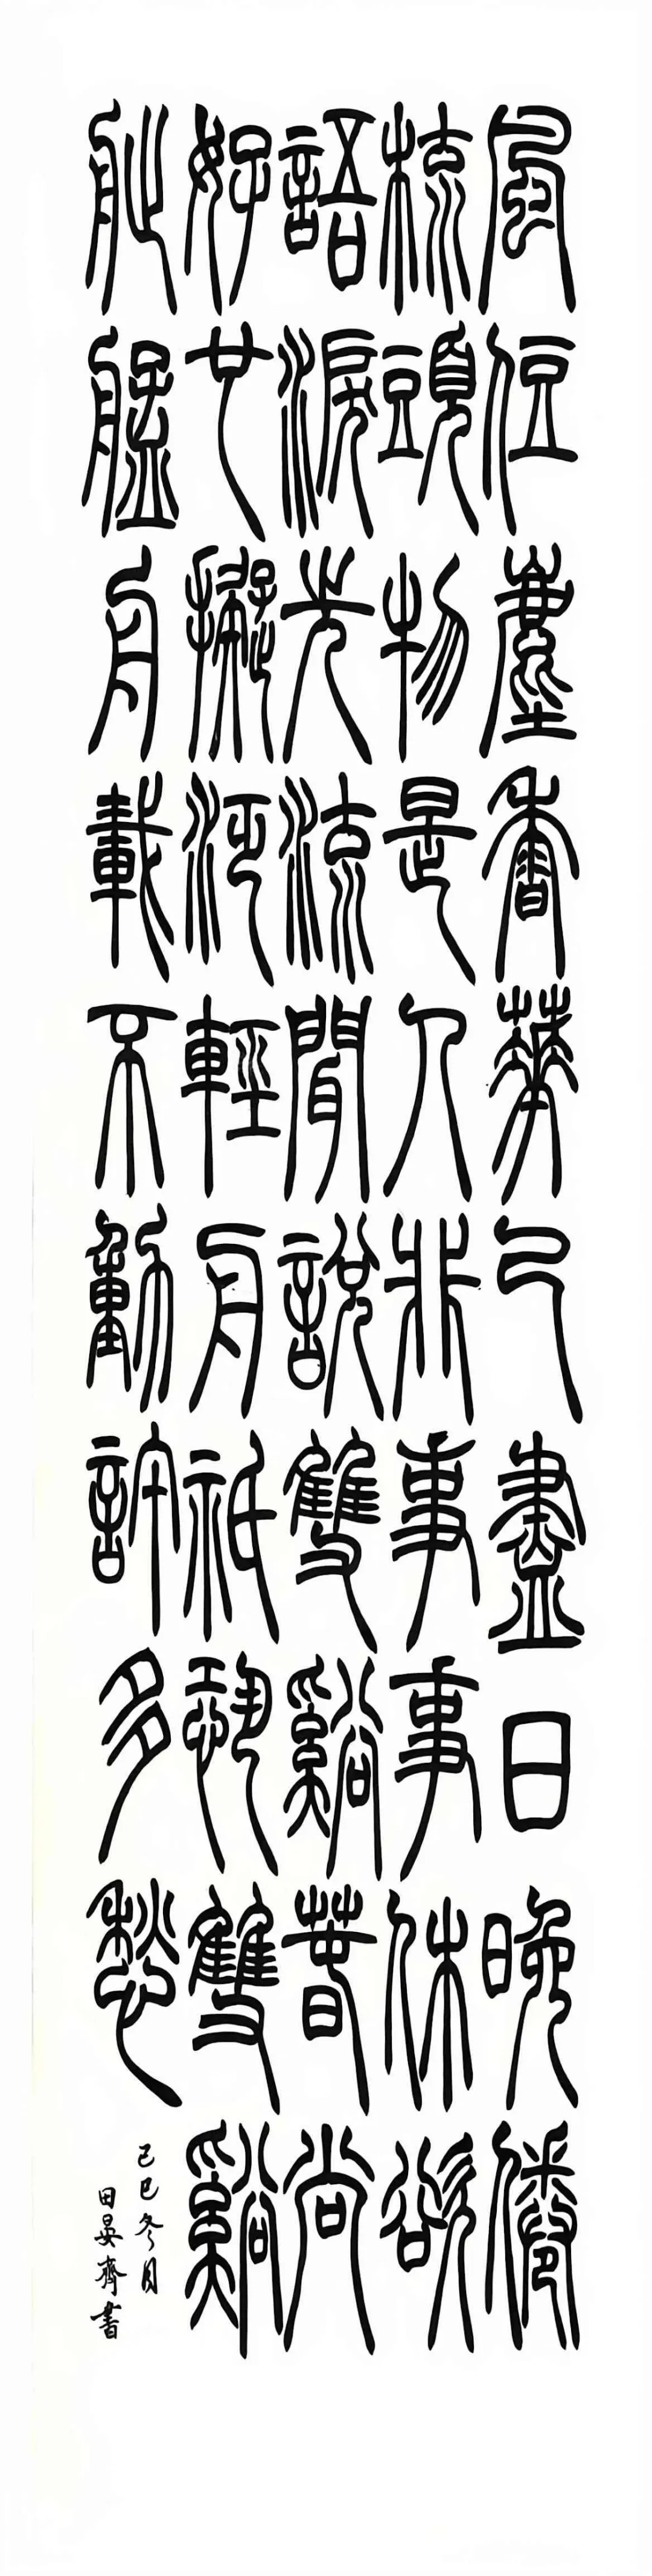 風住塵香華已盡日晚倦
梳頭物是人非事事休欲
語淚先流聞說雙谿春尚
好也擬泛輕舟祇恐雙谿
舴艋舟載不動許多愁
己巳冬月
田晏齊書